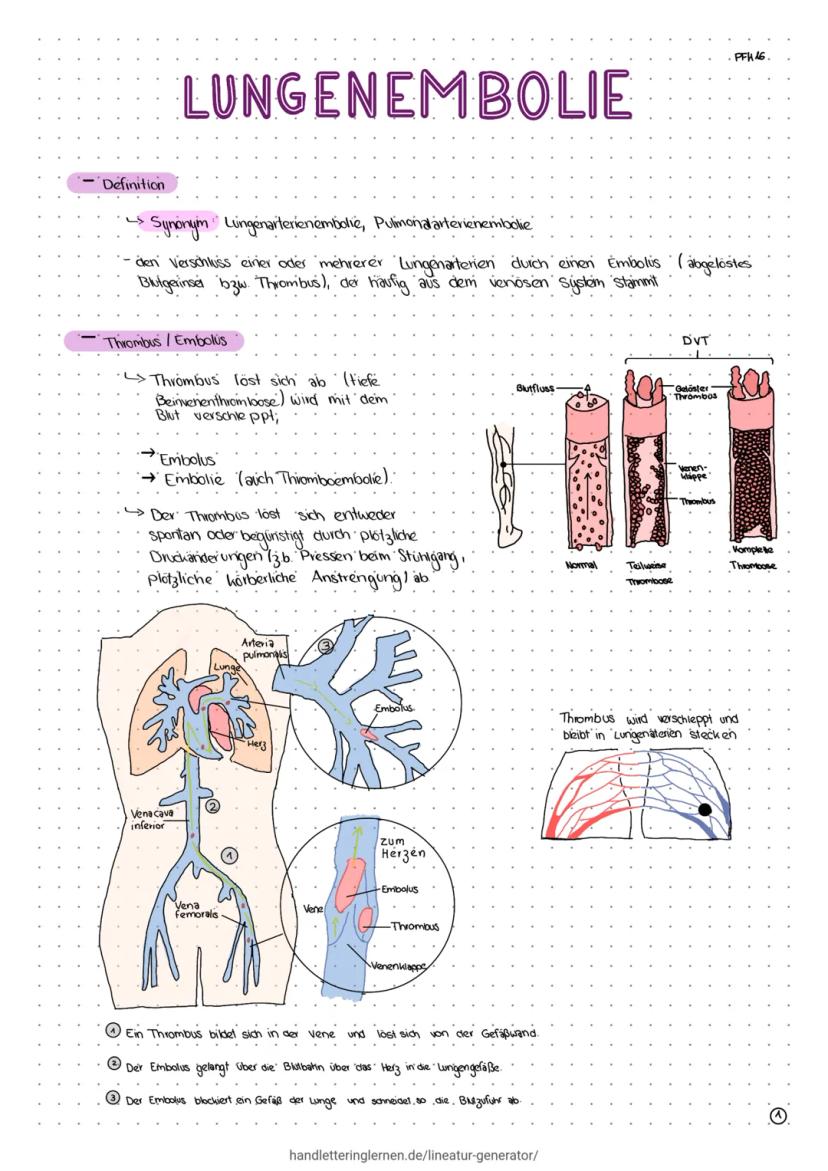 PFH 16
LUNGENEMBOLIE
- Definition
↳ Synonym: Lungenarterienembolie, Pulmonalarterienembolie
- den Verschluss einer oder mehrerer Lungenarterien durch einen Embolus (abgelöstes
Blutgerinsel bzw. Thrombus), der häufig aus dem venösen System stammt
- Thrombus / Embolus
↳ Thrombus löst sich ab (tiefe
Beinvenenthrombose) wird mit dem
Blut verschleppt;
→ Embolus
→ Embolie (auch Thromboembolie).
↳ Der Thrombus löst sich entweder
spontan oder begünstigt durch plötzliche
Druckänderungen (z.b. Pressen beim Stuhlgang,
plötzliche körberliche Anstrengung) ab
DVT
Blutfluss
Gelöster
Thrombus
Venen-
klappe
Thrombus
Normal
Teilweise
Thrombose
Komplette
Thrombose
Arteria
pulmonalis
Lunge
3
Embolus
Herz
Vena cava
inferior
2
1
Vena
femoralis
zum
Herzen
Embolus
Vene
Thrombus
Venenklappe
Thrombus wird verschleppt und
bleibt in Lungenaterien stecken
1 Ein Thrombus bildet sich in der Vene und löst sich von der Gefäßwand.
2 Der Embolus gelangt über die Blutbahn über das Herz in die Lungengefäße.
3 Der Embolus blockiert ein Gefäß der Lunge und schneidet so die Blutzufuhr ab.
1
handletteringlernen.de/lineatur-generator/